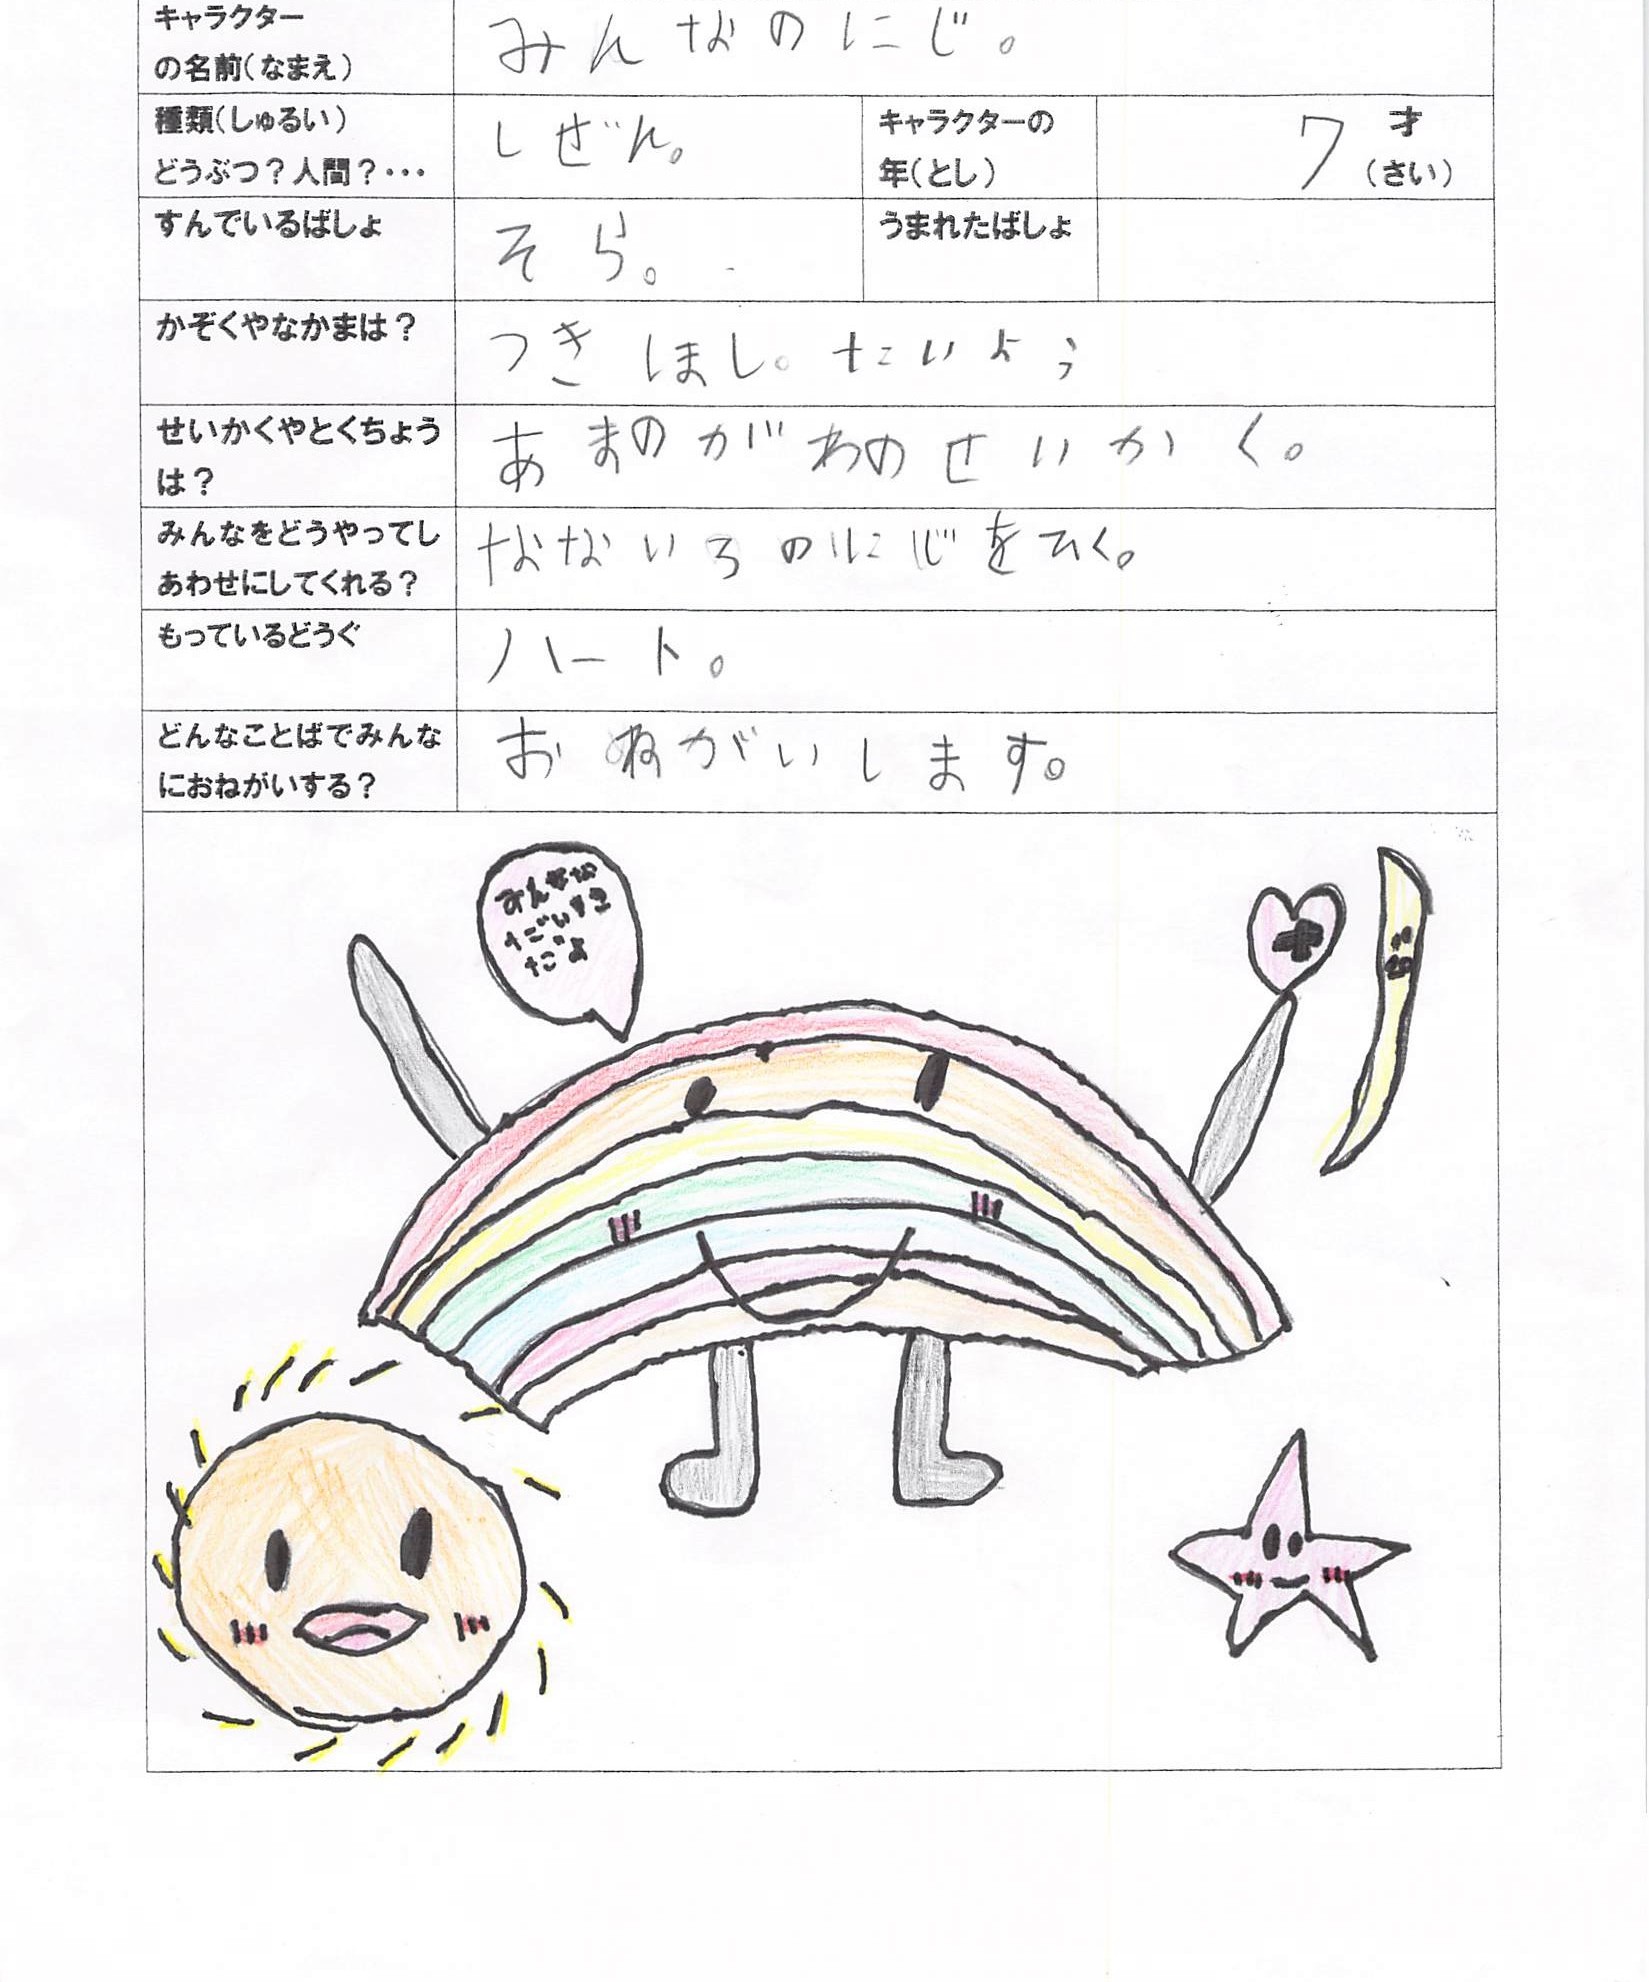 キャラクター
の名前(なまえ)
みんなのにじ。
種類(しゅるい)
どうぶつ？人間？・・・
しぜん。
キャラクターの
年(とし)
7 才
(さい)
すんでいるばしょ
そら。
うまれたばしょ
かぞくやなかまは？
つきほし。たいよう
せいかくやとくちょう
は？
あまのがわのせいかく。
みんなをどうやってし
あわせにしてくれる？
なないろのにじをひく。
もっているどうぐ
ハート。
どんなことばでみんな
におねがいする？
おねがいします。
みんな
だいすき
だよ